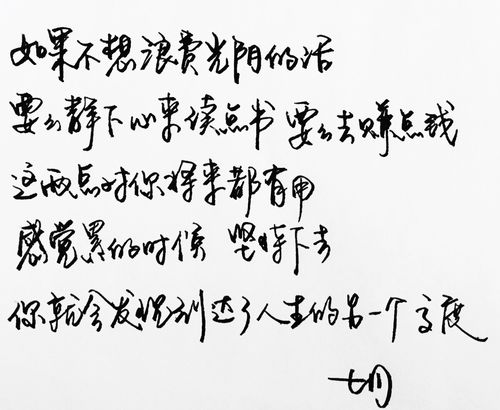 如果不想浪费光阴的话
要么静下心来读点书 要么去赚点钱
这两点对你将来都有用
感觉累的时候 坚持下去
你就会发现到达了人生的另一个高度